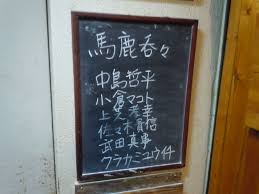 馬鹿呑々
中島哲平
小倉マコト
上 孝幸
佐々木貴
武田真事
クラカミユウイチ